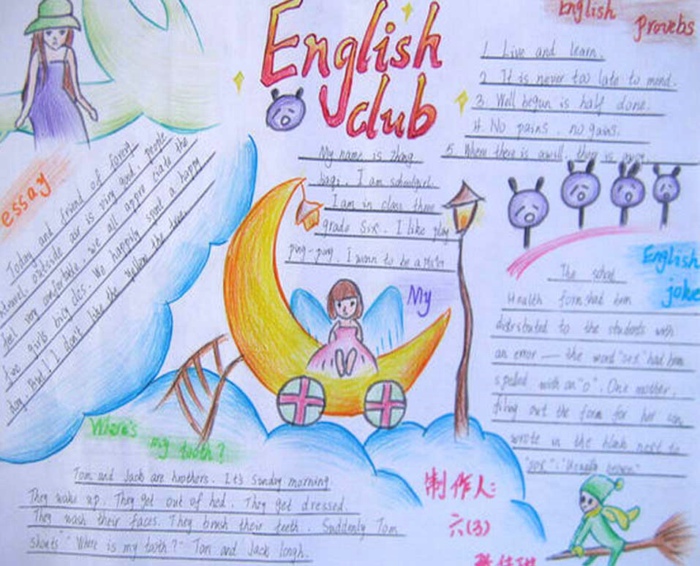 English
club
English
Proverbs
1. Live and learn.
2. It is never too late to mend.
3. Well begun is half done.
4. No pains, no gains.
5. Where there is a will, there is away.
My name is zhang
I am schoolgirl.
I am in class three
grade six. I like play
ping-ping. I wann to be a
My
essay
Today and friend of
outside air is very good, people
feel very comfortable, we all appre ciate the
girls We happily spent a happy
day, But! I don't like the yellow the
English
joke
The school
Health form had been
distributed to the students with
an error — the word "sex" had been
spelled with an "o". One mother,
filling out the form for her son,
wrote in the blank next to
Where's my tooth?
Tom and Jack are brothers. It's Sunday morning.
They wake up. They get out of bed. They get dressed.
They wash their faces. They brush their teeth. Suddenly Tom
shouts "Where is my tooth?" Tom and Jack
制作人:
六(3)